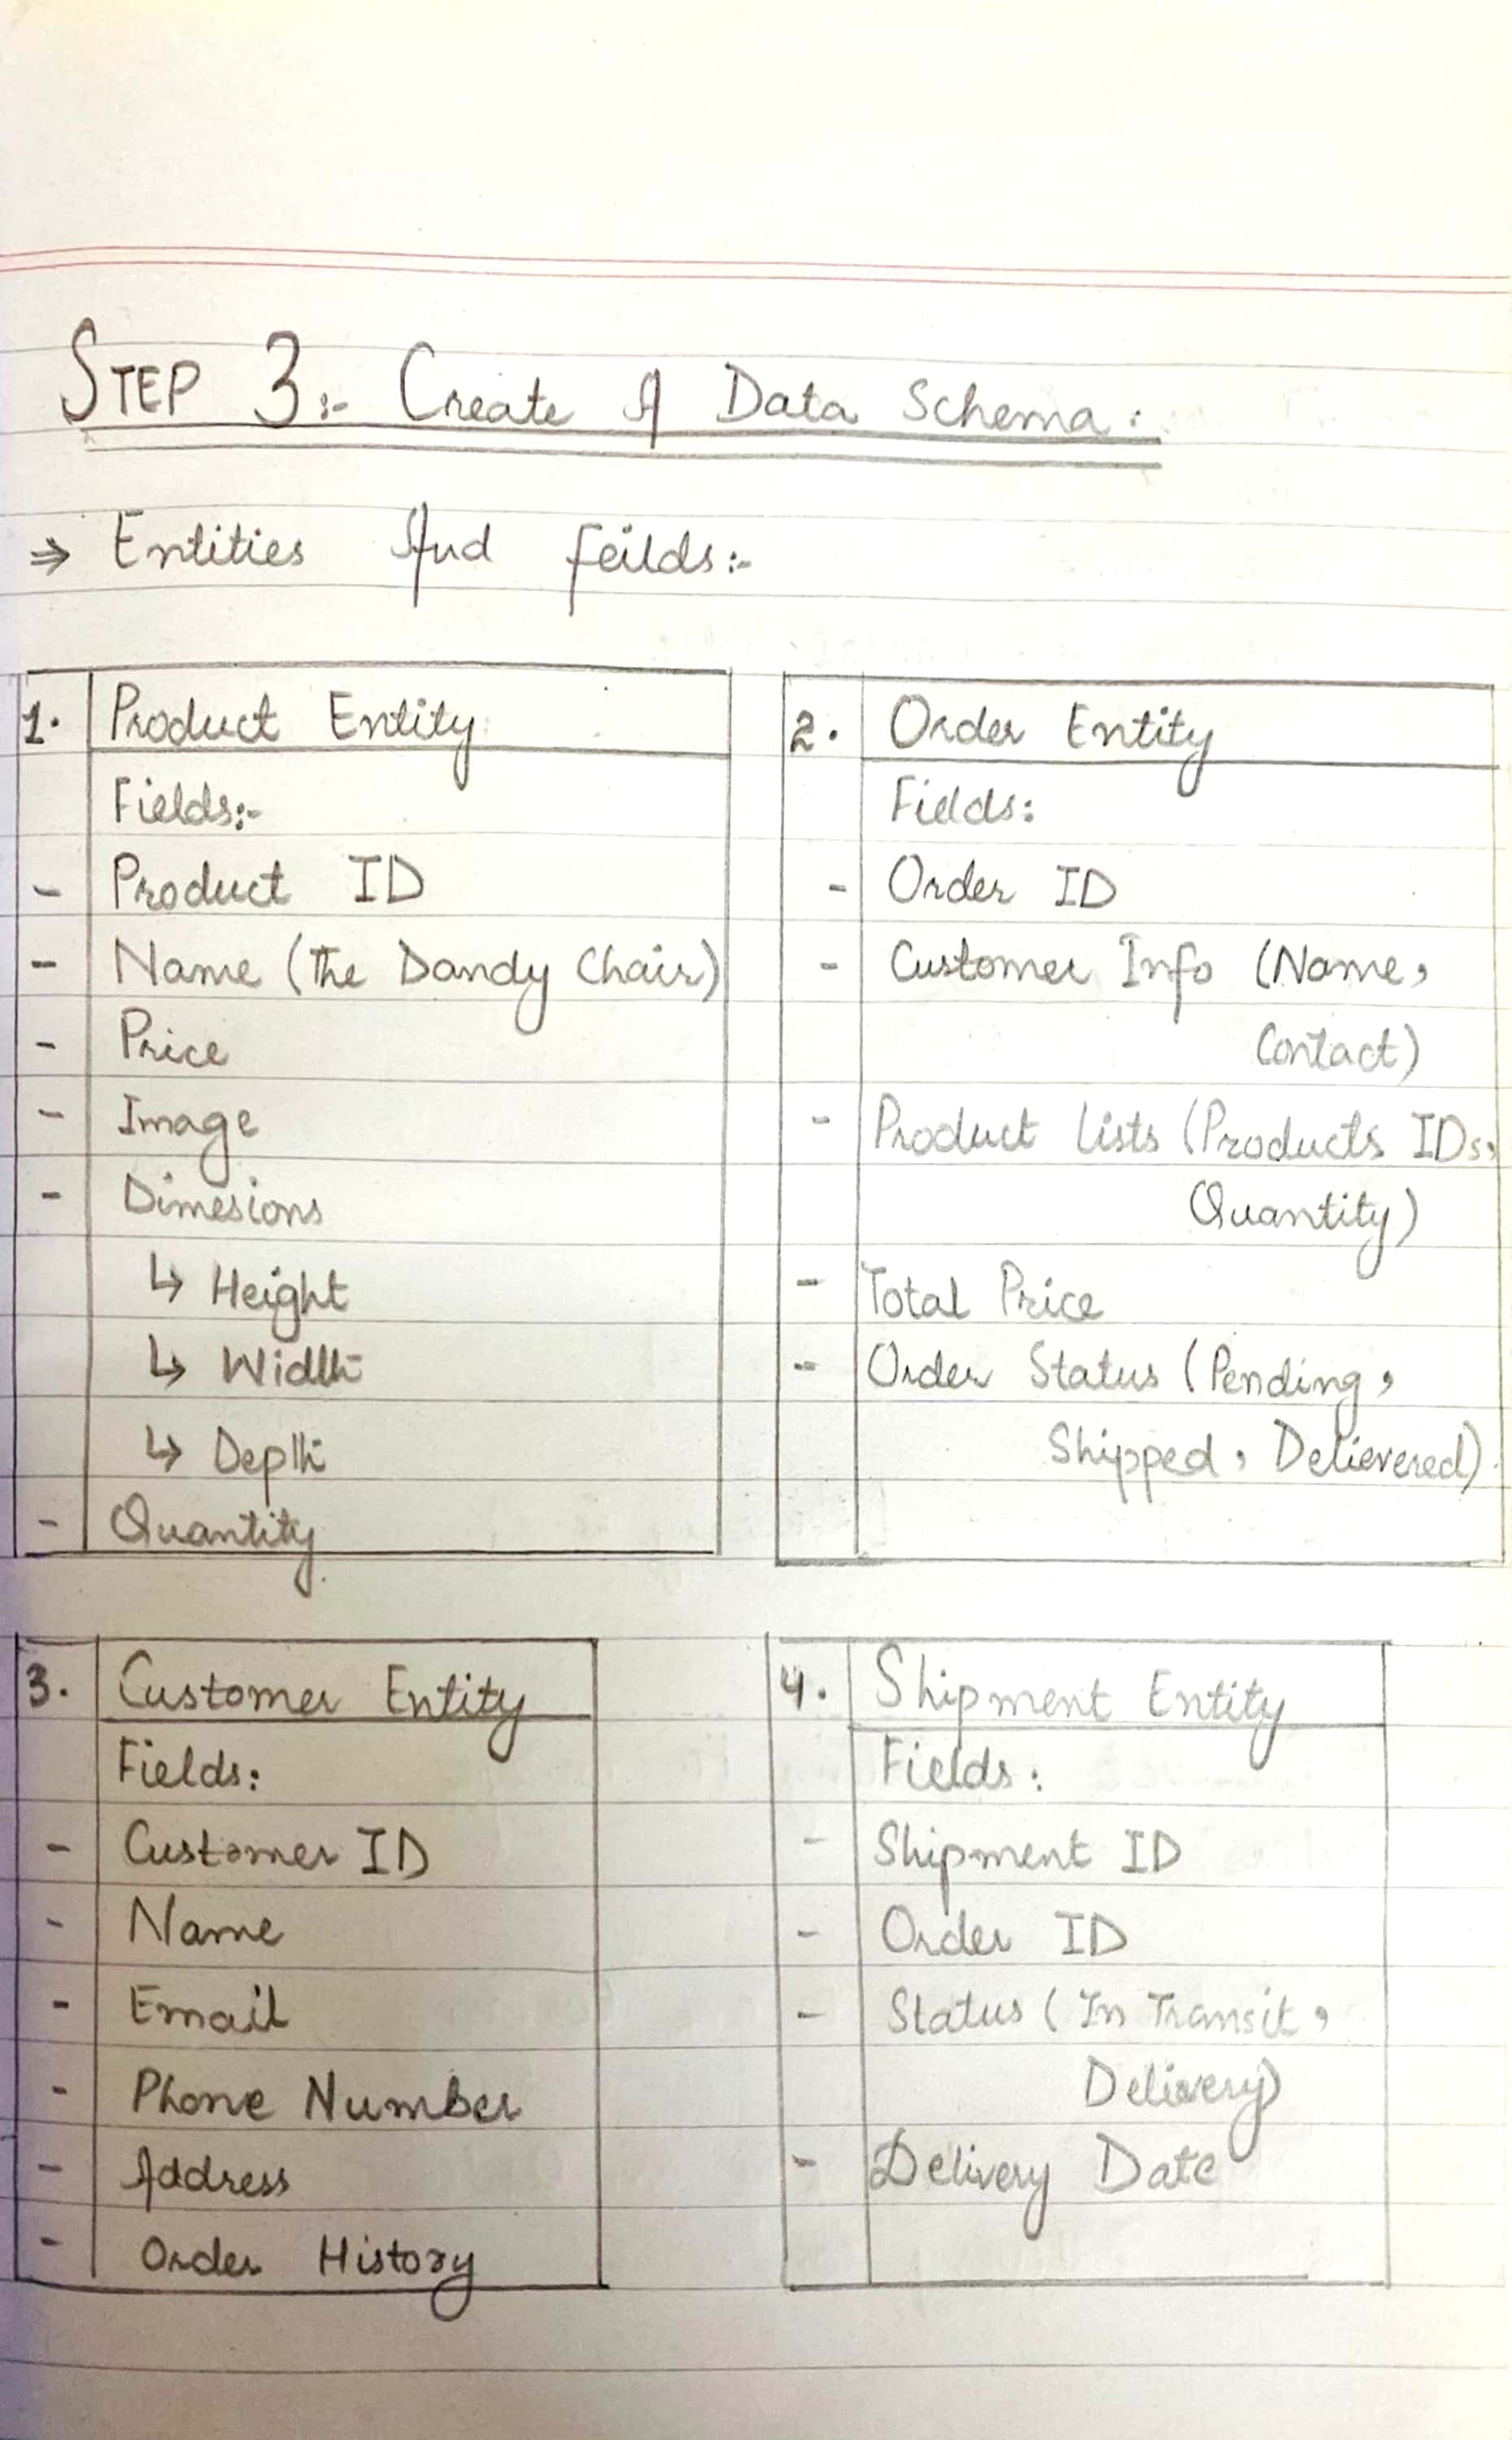 STEP 3:- Create A Data Schema:
⇒ Entities And feilds:-
1. Product Entity
Fields:-
- Product ID
- Name (The Dandy Chair)
- Price
- Image
- Dimesions
↳ Height
↳ Width
↳ Depth
- Quantity
2. Order Entity
Fields:
- Order ID
- Customer Info (Name,
Contact)
- Product Lists (Products IDs,
Quantity)
- Total Price
- Order Status (Pending,
Shipped, Delievered)
3. Customer Entity
Fields:
- Customer ID
- Name
- Email
- Phone Number
- Address
- Order History
4. Shipment Entity
Fields:
- Shipment ID
- Order ID
- Status (In Transit,
Delivery)
- Delivery Date